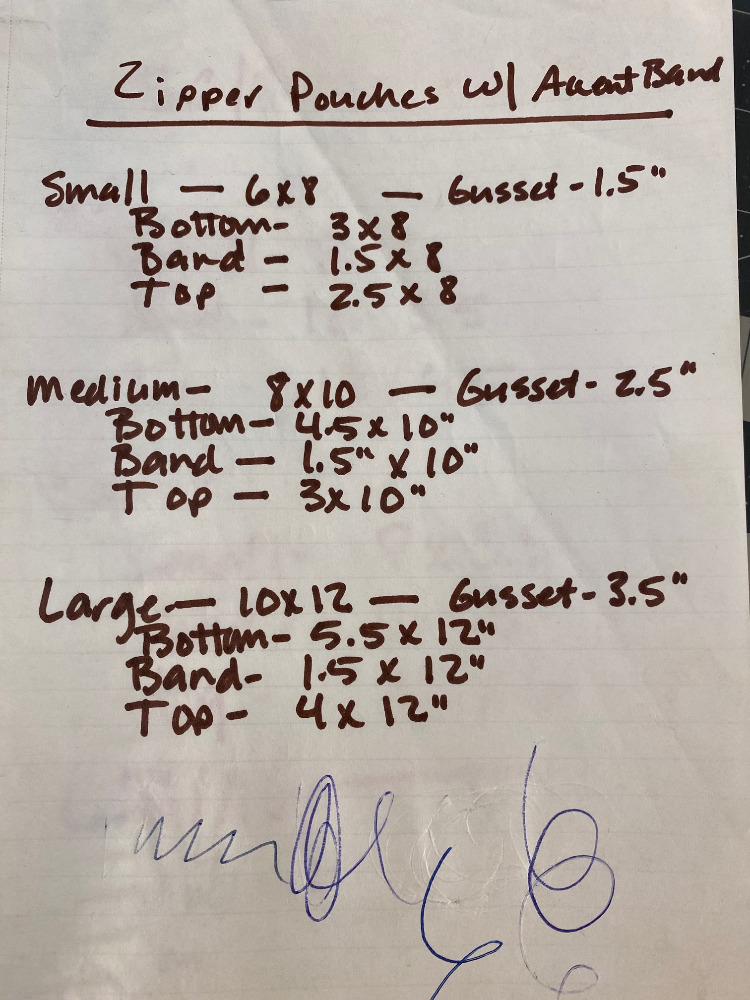 Zipper Pouches w/ Accent Band
Small — 6x8 — Gusset - 1.5"
Bottom - 3x8
Band - 1.5 x 8
Top - 2.5 x 8
Medium - 8x10 — Gusset - 2.5"
Bottom - 4.5 x 10"
Band — 1.5" x 10"
Top — 3x10"
Large — 10x12 — Gusset - 3.5"
Bottom - 5.5 x 12"
Band - 1.5 x 12"
Top - 4x12"